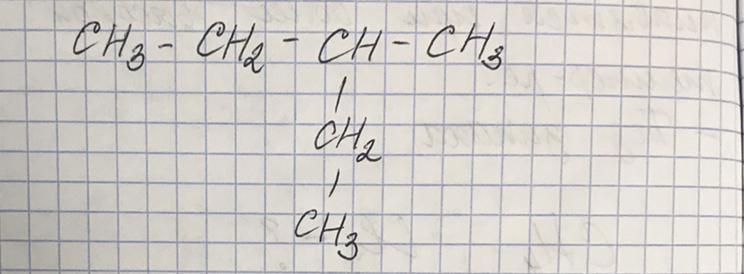 CH₃ - CH₂ - CH - CH₃
|
CH₂
|
CH₃